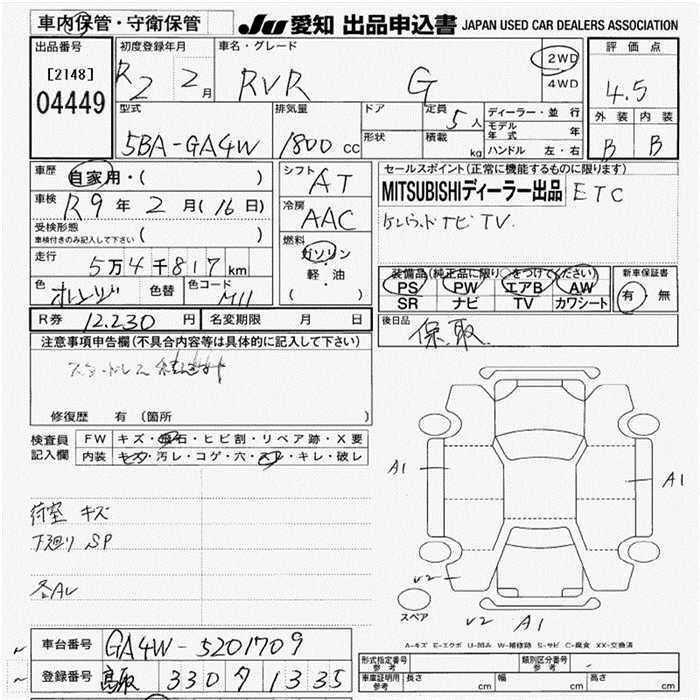 車内保管・守衛保管
JU 愛知 出品申込書 JAPAN USED CAR DEALERS ASSOCIATION
出品番号
[2148]
04449
初度登録年月
R2 2 月
車名・グレード
RVR G
2WD
4WD
評価点
4.5
外装 内装
B B
型式
5BA-GA4W
排気量
1800 cc
ドア
形状
定員
5 人
積載
kg
ディーラー・並行
モデル年式 年
ハンドル 左・右
車歴
自家用・( )
車検
R9 年 2 月(16日)
受検形態
車検付きのみ記入して下さい ( )
走行
5万4千817km
色
オレンジ
色替
色コード
M11
シフト
AT
冷房
AAC
燃料
ガソリン
軽・油
( )
セールスポイント(正常に機能するものに限ります)
MITSUBISHIディーラー出品 ETC
TV
装備品(純正品に限り○をつけてください)
PS PW エアB AW
SR ナビ TV カワシート
新車保証書
有・無
R券 12.230 円
名変期限 月 日
後日品
保.取.
注意事項申告欄(不具合内容等は具体的に記入して下さい)
スタッドレス
修復歴 有(箇所 )
検査員
記入欄
FW キズ・飛石・ヒビ割・リペア跡・X要
内装 キズ・汚レ・コゲ・穴・スレ・キレ・破レ
荷室 キズ
下廻り SP
A1
A1
V2
スペア
V2 A1
A-キズ E-エクボ U-凹み W-補修跡 S-サビ C-腐食 XX-交換済
車台番号 GA4W-5201709
登録番号 鳥取 330 1335
形式指定番号
参考
類別区分番号
参考
車庫証明用
参考
長さ cm
幅 cm
高さ cm